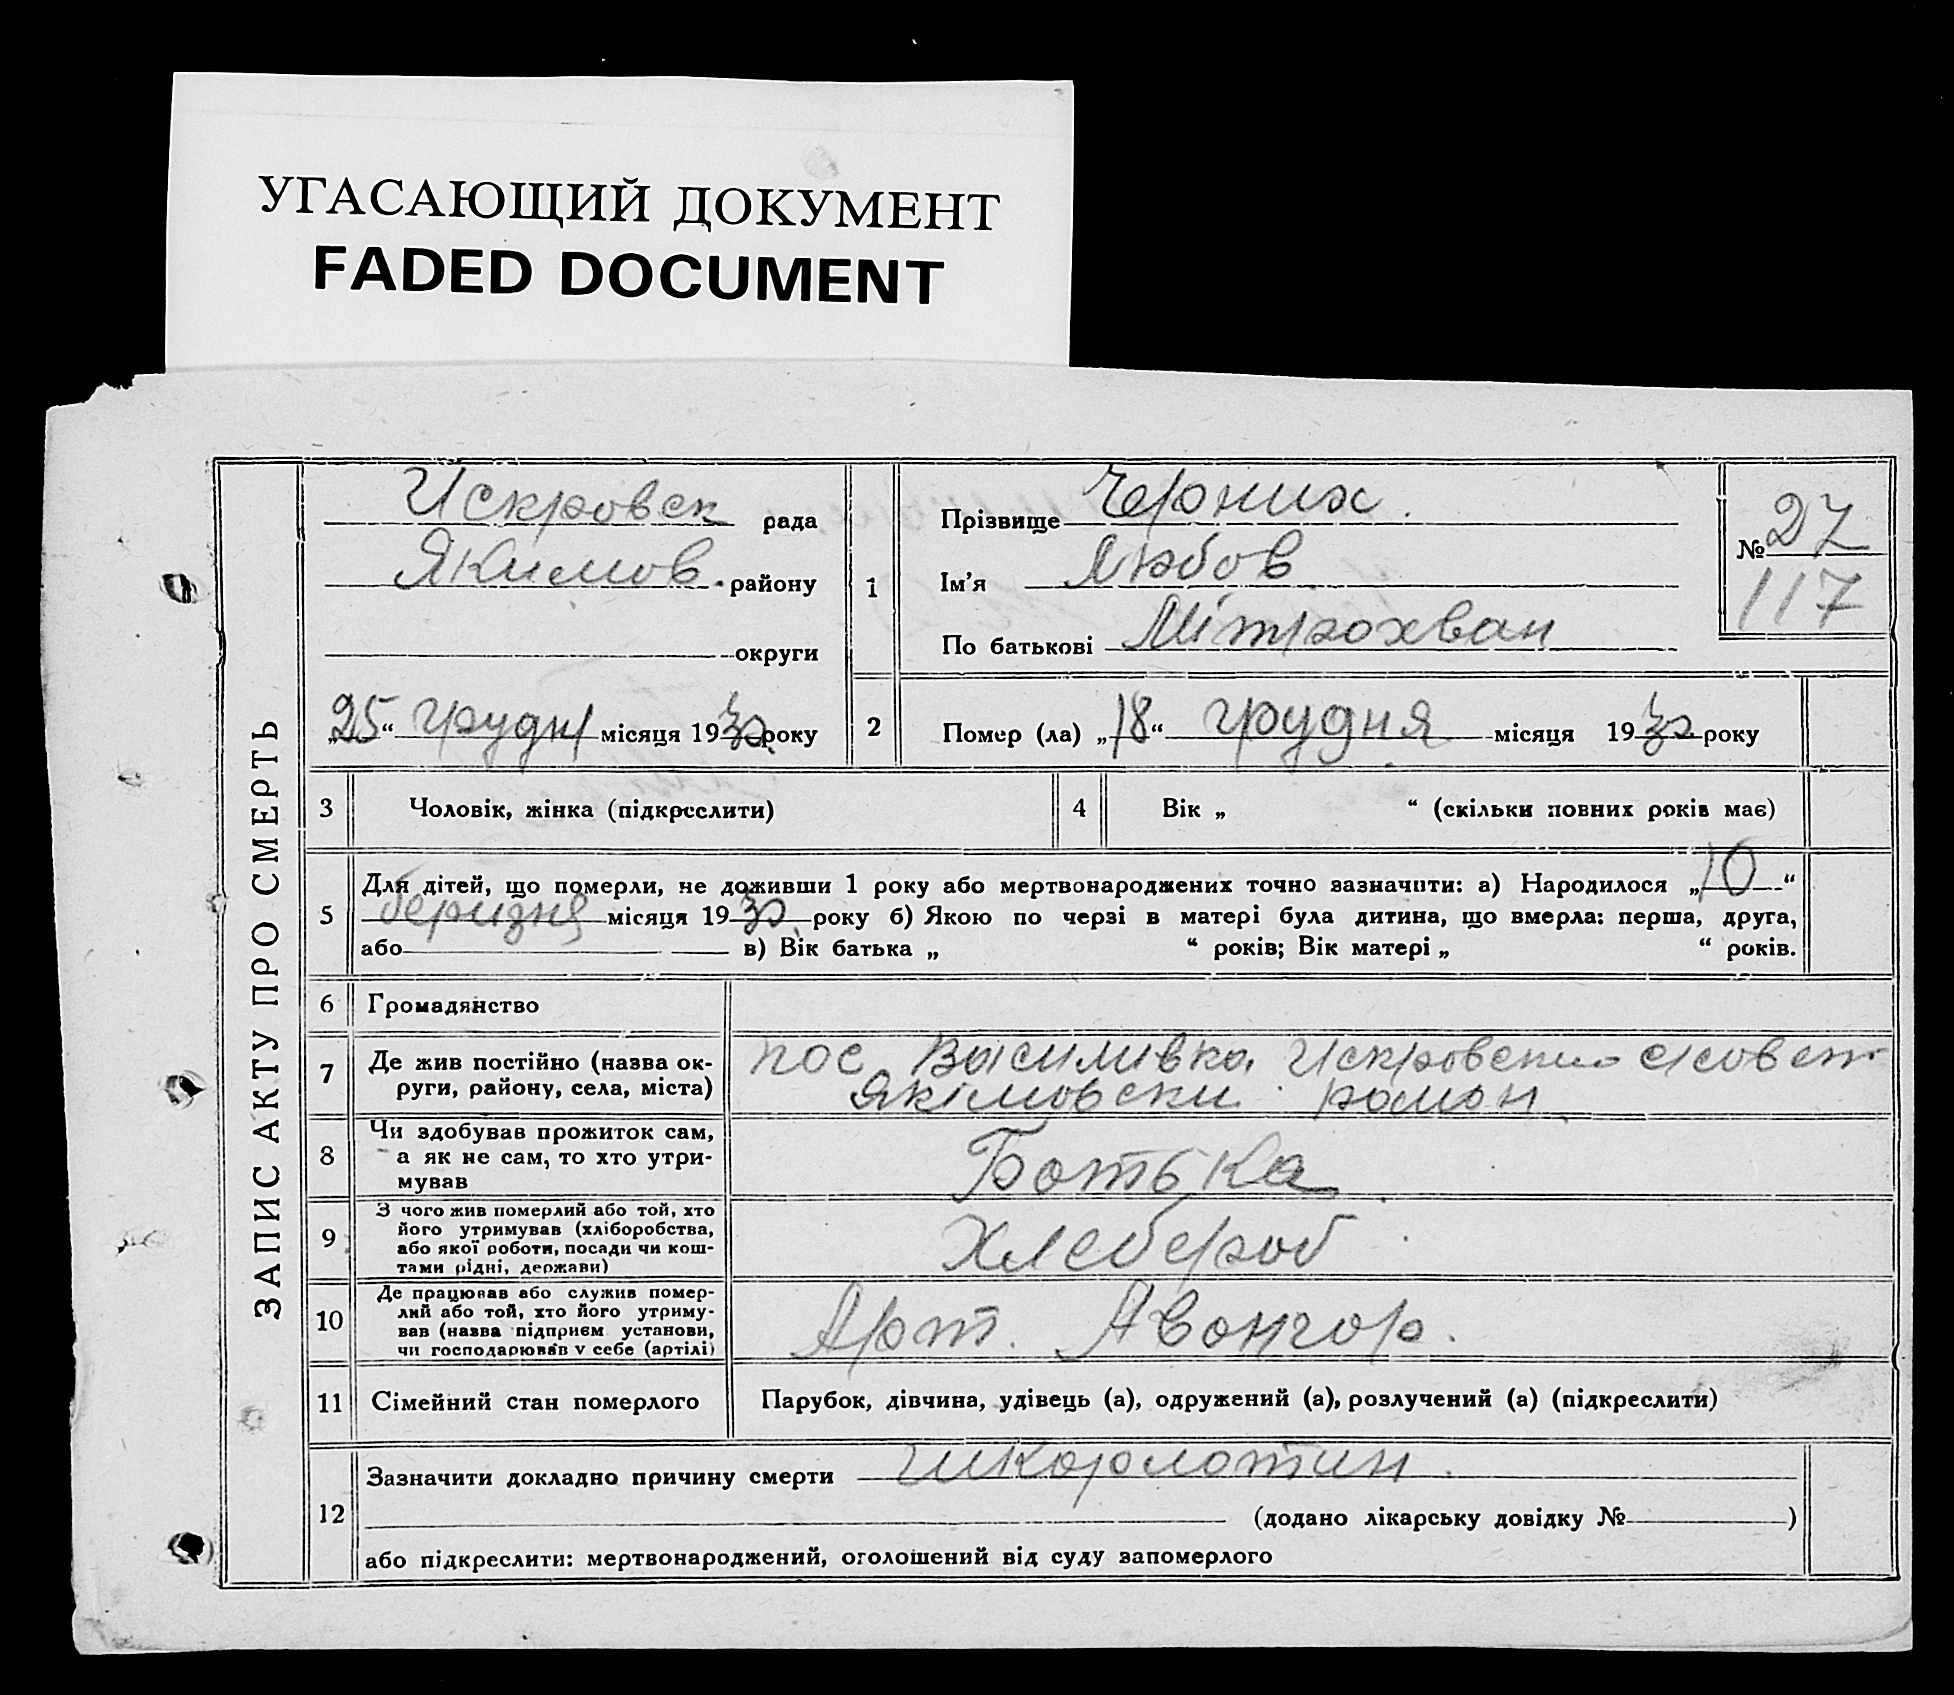 УГАСАЮЩИЙ ДОКУМЕНТ
FADED DOCUMENT
ЗАПИС АКТУ ПРО СМЕРТЬ
Искровск рада
Якимов. району
округи
„25“ грудня місяця 1932 року
1
Прізвище Черних.
Ім'я Любов
По батькові Мітрохван
№ 27
117
2
Помер (ла) „18“ грудня місяця 1932 року
3 Чоловік, жінка (підкреслити)
4 Вік „ “ (скільки повних років має)
5
Для дітей, що померли, не доживши 1 року або мертвонароджених точно зазначити: а) Народилося „10“
березня місяця 1932 року б) Якою по черзі в матері була дитина, що вмерла: перша, друга,
або в) Вік батька „ “ років; Вік матері „ “ років.
6 Громадянство
7
Де жив постійно (назва ок-
руги, району, села, міста)
пос Василивка Искровск
Якімовски
8
Чи здобував прожиток сам,
а як не сам, то хто утри-
мував
Батька
9
З чого жив померлий або той, хто
його утримував (хліборобства,
або якої роботи, посади чи кош-
тами рідні, держави)
Хлебероб
10
Де працював або служив помер-
лий або той, хто його утриму-
вав (назва підприєм установи,
чи господарював у себе (артілі)
Арт. Авангар.
11 Сімейний стан померлого
Парубок, дівчина, удівець (а), одружений (а), розлучений (а) (підкреслити)
12
Зазначити докладно причину смерти шкарлотин.
(додано лікарську довідку № )
або підкреслити: мертвонароджений, оголошений від суду запомерлого